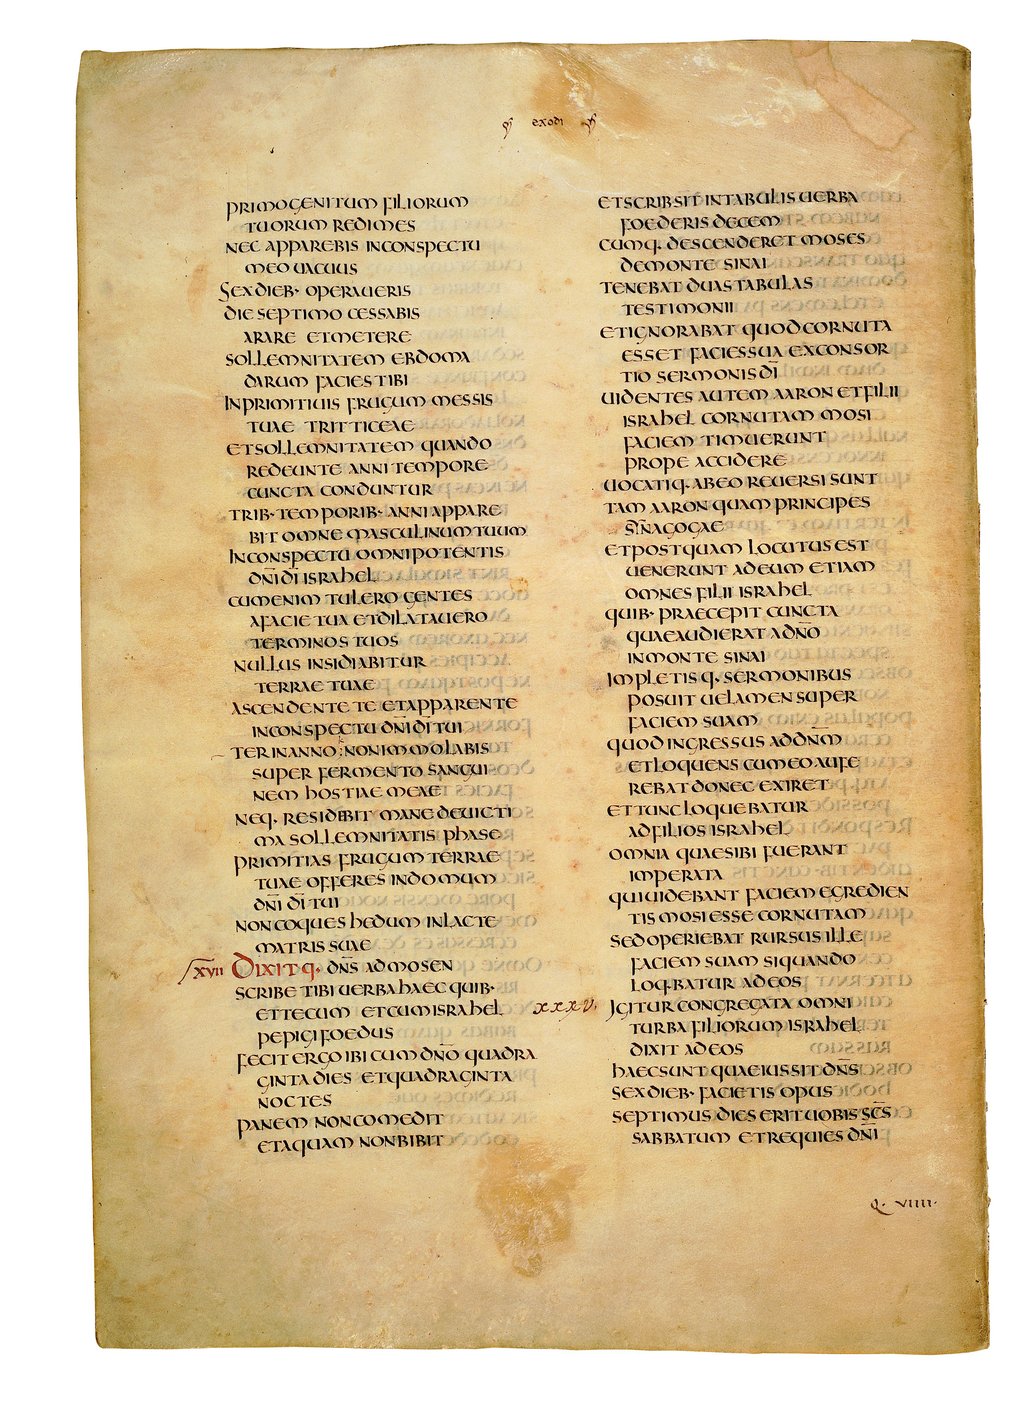 exodi
PRIMOGENITUM FILIORUM
TUORUM REDIMES
NEC APPAREBIS INCONSPECTU
MEO UACUUS
SEXDIEB· OPERAUERIS
DIE SEPTIMO CESSABIS
ARARE ETMETERE
SOLLEMNITATEM EBDOMA
DARUM FACIESTIBI
INPRIMITIUIS FRUGUM MESSIS
TUAE TRITTICEAE
ETSOLLEMNITATEM QUANDO
REDEUNTE ANNI TEMPORE
CUNCTA CONDUNTUR
TRIB· TEMPORIB· ANNI APPARE
BIT OMNE MASCULINUM TUUM
INCONSPECTU OMNIPOTENTIS
DN̄I DĪ ISRAHEL
CUMENIM TULERO GENTES
AFACIE TUA ETDILATAUERO
TERMINOS TUOS
NULLUS INSIDIABITUR
TERRAE TUAE
ASCENDENTE TE ETAPPARENTE
INCONSPECTU DN̄I DĪ TUI
TER INANNO NONIMMOLABIS
SUPER FERMENTO SANGUI
NEM HOSTIAE MEAE
NEQ· RESIDEBIT MANE DEUICTI
MA SOLLEMNITATIS PHASE
PRIMITIAS FRUGUM TERRAE
TUAE OFFERES INDOMUM
DN̄I DĪ TUI
NONCOQUES HEDUM INLACTE
MATRIS SUAE
XVII DIXITQ· DN̄S ADMOSEN
SCRIBE TIBI UERBA HAEC QUIB·
ETTECUM ETCUMISRAHEL
PEPIGI FOEDUS
FECIT ERGO IBI CUM DN̄O QUADRA
GINTA DIES ETQUADRAGINTA
NOCTES
PANEM NONCOMEDIT
ETAQUAM NONBIBIT
ETSCRIBSIT INTABULIS UERBA
FOEDERIS DECEM
CUMQ· DESCENDERET MOSES
DEMONTE SINAI
TENEBAT DUAS TABULAS
TESTIMONII
ETIGNORABAT QUOD CORNUTA
ESSET FACIES SUA EXCONSOR
TIO SERMONIS DĪ
UIDENTES AUTEM AARON ETFILII
ISRAHEL CORNUTAM MOSI
FACIEM TIMUERUNT
PROPE ACCIDERE
UOCATIQ· ABEO REUERSI SUNT
TAM AARON QUAM PRINCIPES
SINAGOGAE
ETPOSTQUAM LOCUTUS EST
UENERUNT ADEUM ETIAM
OMNES FILII ISRAHEL
QUIB· PRAECEPIT CUNCTA
QUAEAUDIERAT ADN̄O
INMONTE SINAI
IMPLETISQ· SERMONIBUS
POSUIT UELAMEN SUPER
FACIEM SUAM
QUOD INGRESSUS ADDN̄M
ETLOQUENS CUMEO AUFE
REBAT DONEC EXIRET
ETTUNC LOQUEBATUR
ADFILIOS ISRAHEL
OMNIA QUAESIBI FUERANT
IMPERATA
QUIUIDEBANT FACIEM EGREDIEN
TIS MOSI ESSE CORNUTAM
SEDOPERIEBAT RURSUS ILLE
FACIEM SUAM SIQUANDO
LOQ·BATUR ADEOS
XXXV· IGITUR CONGREGATA OMNI
TURBA FILIORUM ISRAHEL
DIXIT ADEOS
HAECSUNT QUAEIUSSIT DN̄S
SEXDIEB· FACIETIS OPUS
SEPTIMUS DIES ERIT UOBIS SC̄S
SABBATUM ETREQUIES DN̄I
Q· VIIII·